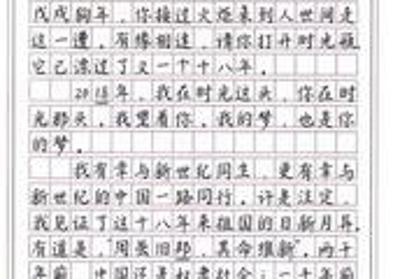 戊戌狗年，你接过火炬来到人世间走
这一遭，有缘相逢，请你打开时光瓶
它已漂过了又一个十八年。
2018年，我在时光这头，你在时
光那头，我望着你，我的梦，也是你
的梦。
我有幸与新世纪同生，更有幸与
新世纪的中国一路同行。许是注定，
我见证了这十八年来祖国的日新月异。
有道是，“周虽旧邦，其命维新”。两千
年前，中国还是